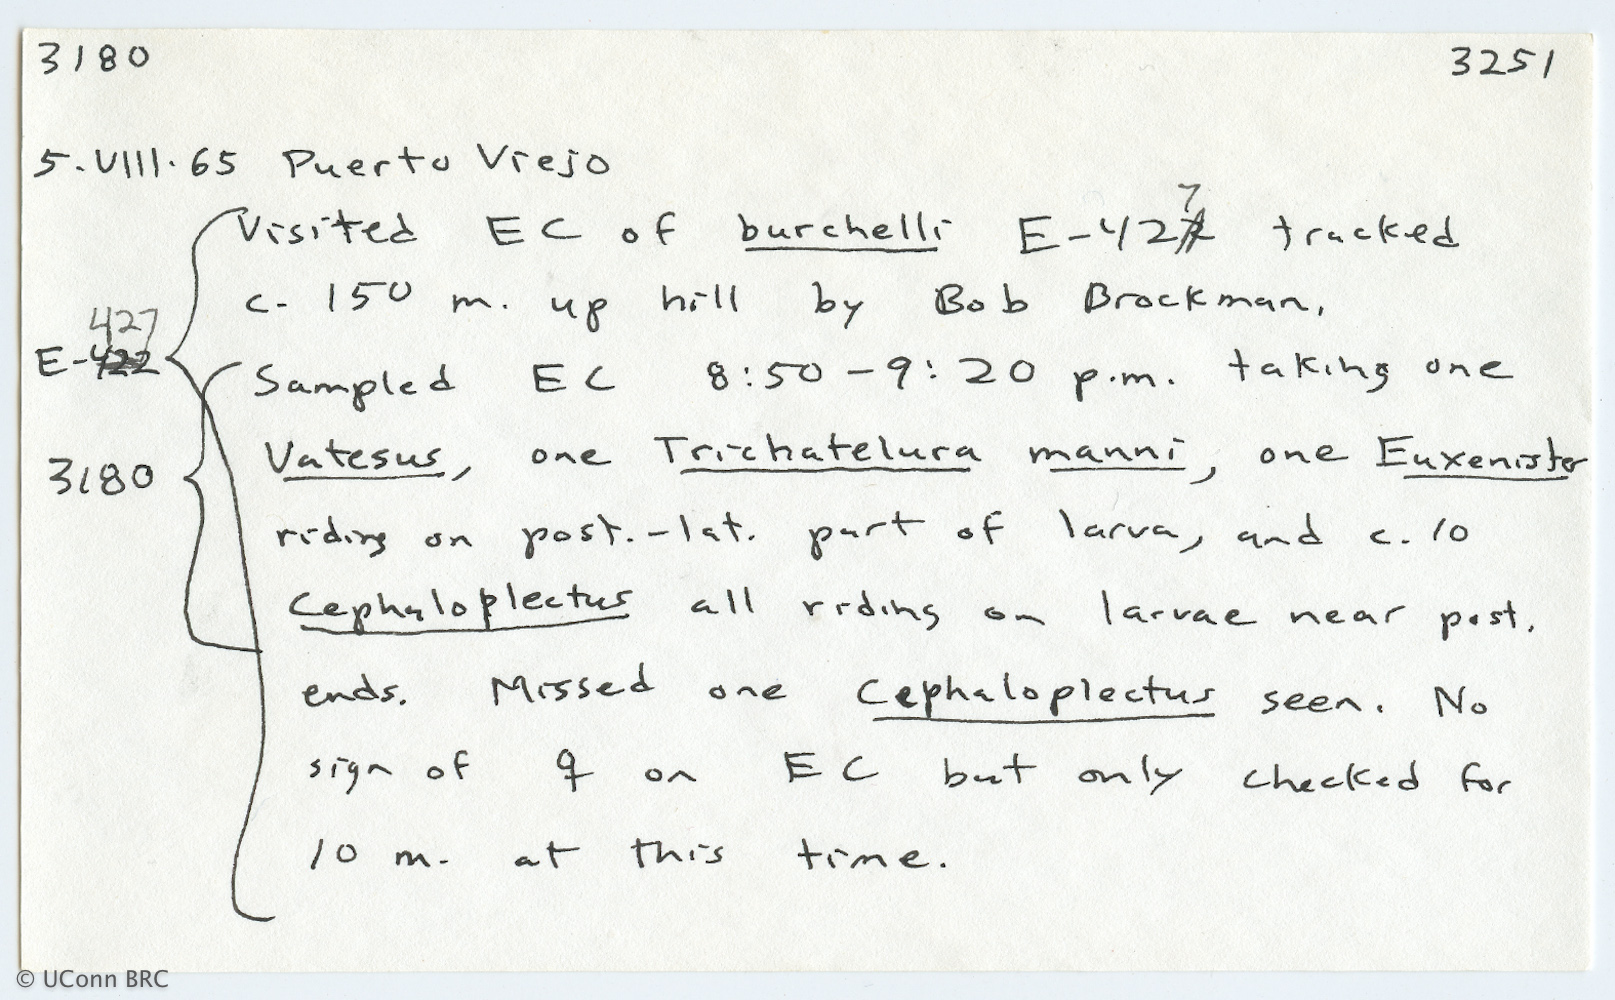 3180 3251
5.VIII.65 Puerto Viejo
Visited EC of burchelli E-427 tracked
c. 150 m. up hill by Bob Brockman.
E-427
Sampled EC 8:50-9:20 p.m. taking one
Vatesus, one Trichatelura manni, one Euxenister
3180
riding on post.-lat. part of larva, and c. 10
Cephaloplectus all riding on larvae near post.
ends. Missed one Cephaloplectus seen. No
sign of ♀ on EC but only checked for
10 m. at this time.
© UConn BRC